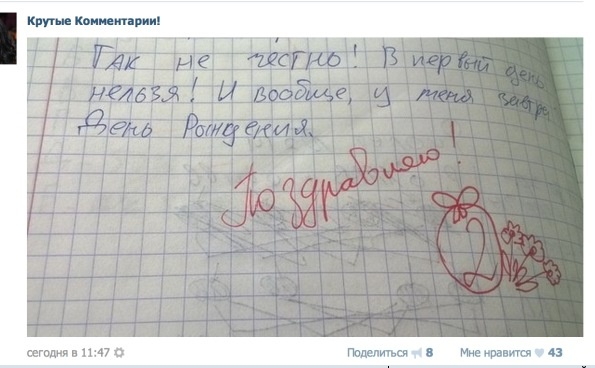 Крутые Комментарии!
Так не честно! В первый день
нельзя! И вообще, у меня завтра
День Рождения.
Поздравляю!
2
сегодня в 11:47
Поделиться 8 Мне нравится 43